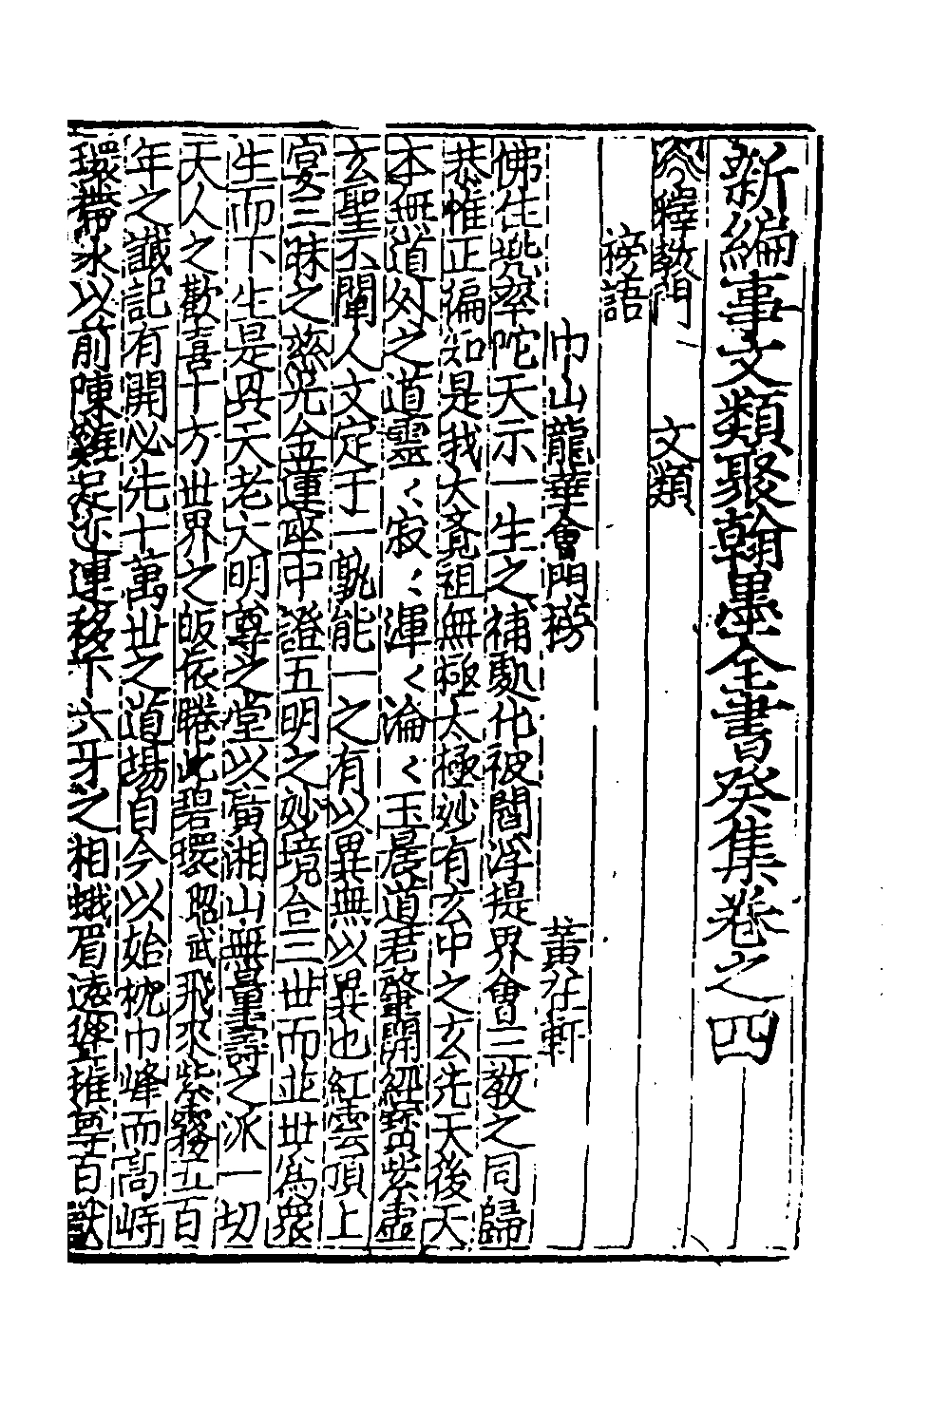 新編事文類聚翰墨全書癸集卷之四
釋教門　文類
榜語
巾山龍華會門榜　黄在軒
佛生兠率陀天示一生之補處化被閻浮提界會三教之同歸
恭惟正徧知是我大覺祖無極太極妙有玄中之玄先天後天
本無道外之道靈〱寂〻渾〱淪〱玉晨道君肇開經寶紫虛
玄聖丕闡人文定于一孰能一之有以異無以異也紅雲頂上
宴三昧之慈光金蓮座中證五明之妙境合三世而並世為衆
生而下生是與天老大明尊之堂以廣湘山無量壽之派一切
天人之歡喜十方世界之皈依睠此碧環昭武飛來紫霧五百
年之讖記有開必先十萬世之道場自今以始枕巾峰而高峙
環帶水以前陳雞足近連移下六牙之相蛾眉遠聳推尊百獸